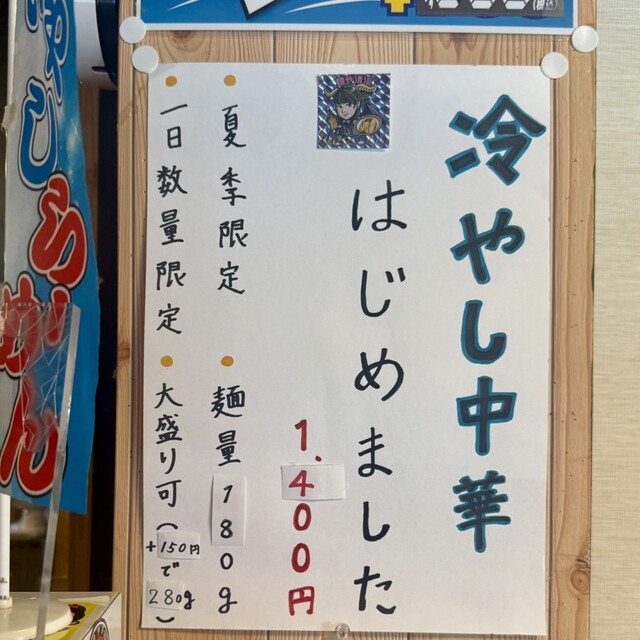 冷やし中華
はじめました
1.400円
●夏季限定
●麺量180g
●一日数量限定
●大盛り可(+150円で280g)
冷しらーめん
(税込)